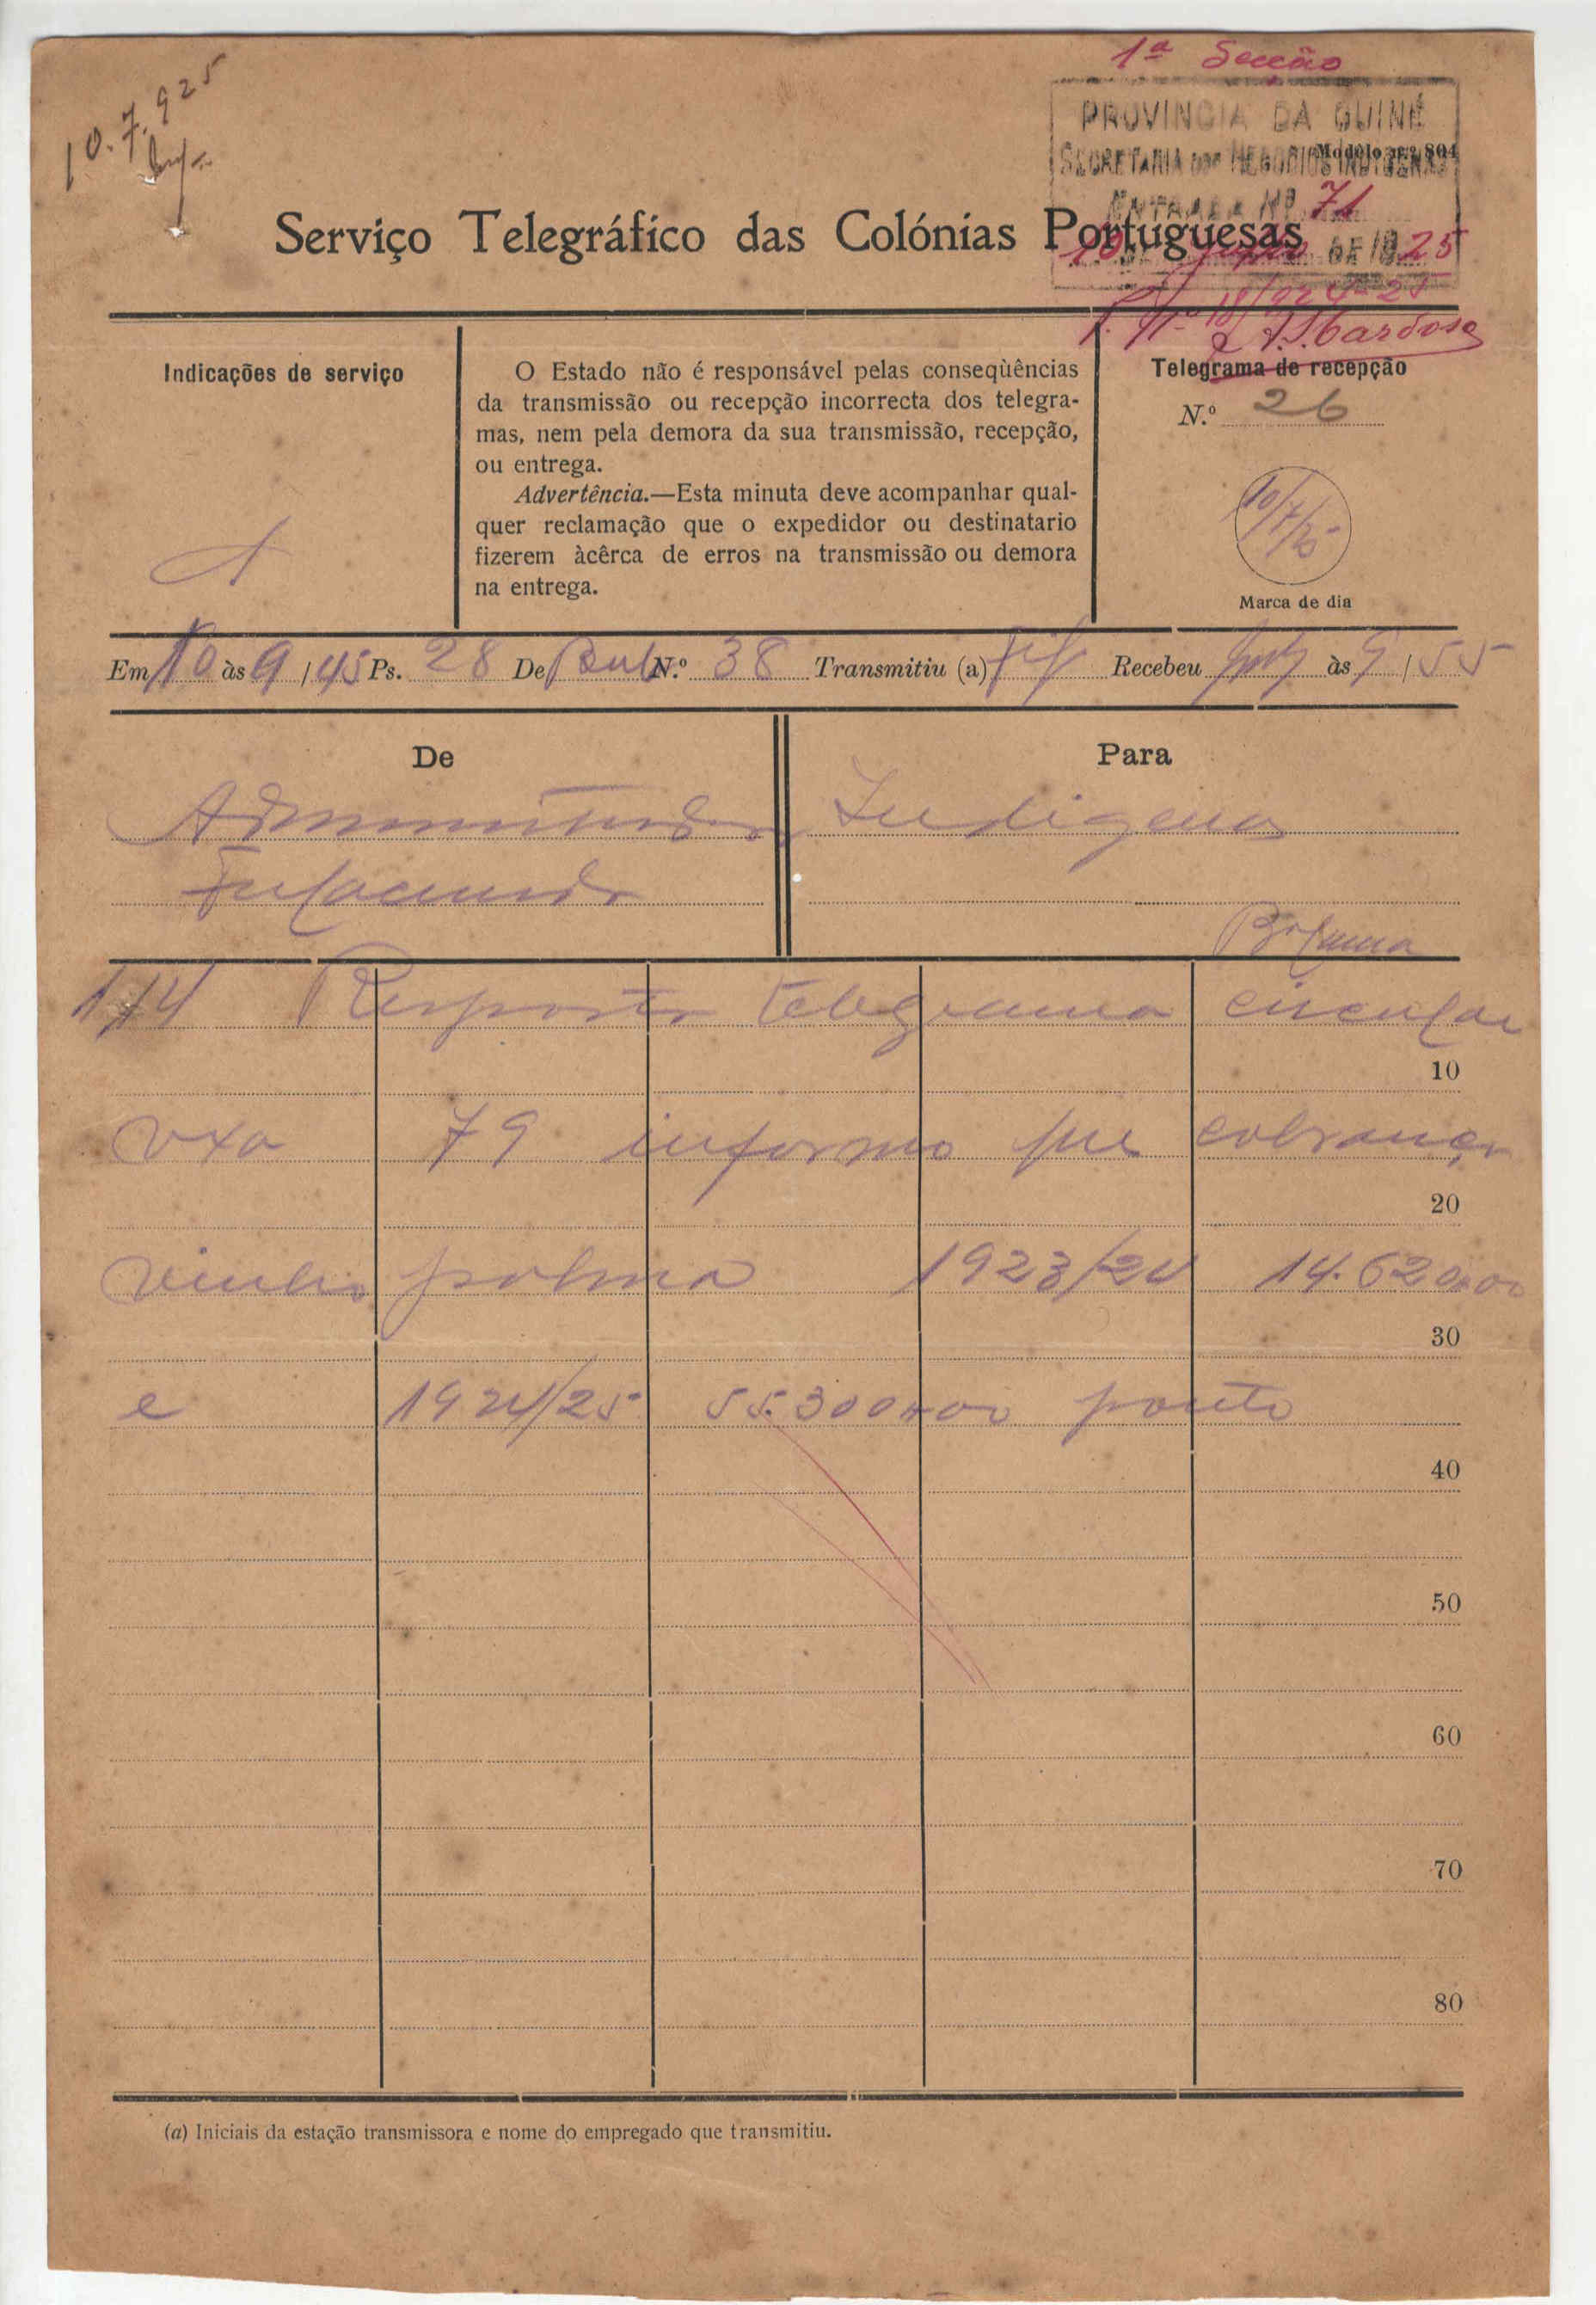 1ª Secção
10.7.925
PROVINCIA DA GUINÉ
Modêlo n.º 804
SECRETARIA DOS NEGOCIOS INDIGENAS
ENTRADA Nº 71
Serviço Telegráfico das Colónias Portuguesas
10 DE Julho DE 1925
P. Nº 18/924-25
Cardoso
Indicações de serviço
O Estado não é responsável pelas conseqùências
da transmissão ou recepção incorrecta dos telegra-
mas, nem pela demora da sua transmissão, recepção,
ou entrega.
Advertência.—Esta minuta deve acompanhar qual-
quer reclamação que o expedidor ou destinatario
fizerem àcêrca de erros na transmissão ou demora
na entrega.
Telegrama de recepção
N.º 26
10/7/25
Marca de dia
Em 10 às 9/45 Ps. 28 De Bula N.º 38 Transmitiu (a) Recebeu às 9/55
De
Administrador
Fulacunda
Para
Indigenas
Bolama
114 Resposta telegrama circular
10
vxa 79 informo que cobrança
20
vinho palma 1923/24 14.620$00
30
e 1924/25 55.300$00 ponto
40
50
60
70
80
(a) Iniciais da estação transmissora e nome do empregado que transmitiu.